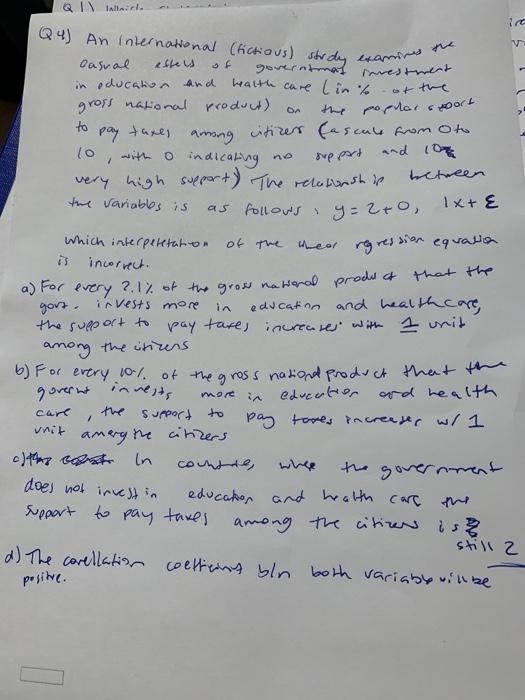 Q1)
Q4) An International (fictious) study examines the
casual effects of government investment
in education and health care (in % of the
gross national product) on the popular support
to pay taxes among citizens (a scale from 0 to
10, with 0 indicating no support and 10
very high support) The relationship between
the variables is as follows: y = 2+0, 1x + ε
Which interpretation of the linear regression equation
is incorrect.
a) For every 0.1% of the gross national product that the
govt. invests more in education and healthcare,
the support to pay taxes increases with 1 unit
among the citizens
b) For every 10% of the gross national product that the
government invests more in education and health
care, the support to pay taxes increases w/ 1
unit among the citizens
c) In countries, where the government
does not invest in education and health care the
support to pay taxes among the citizens is
still 2
d) The corellation coefficient b/n both variable will be
positive.